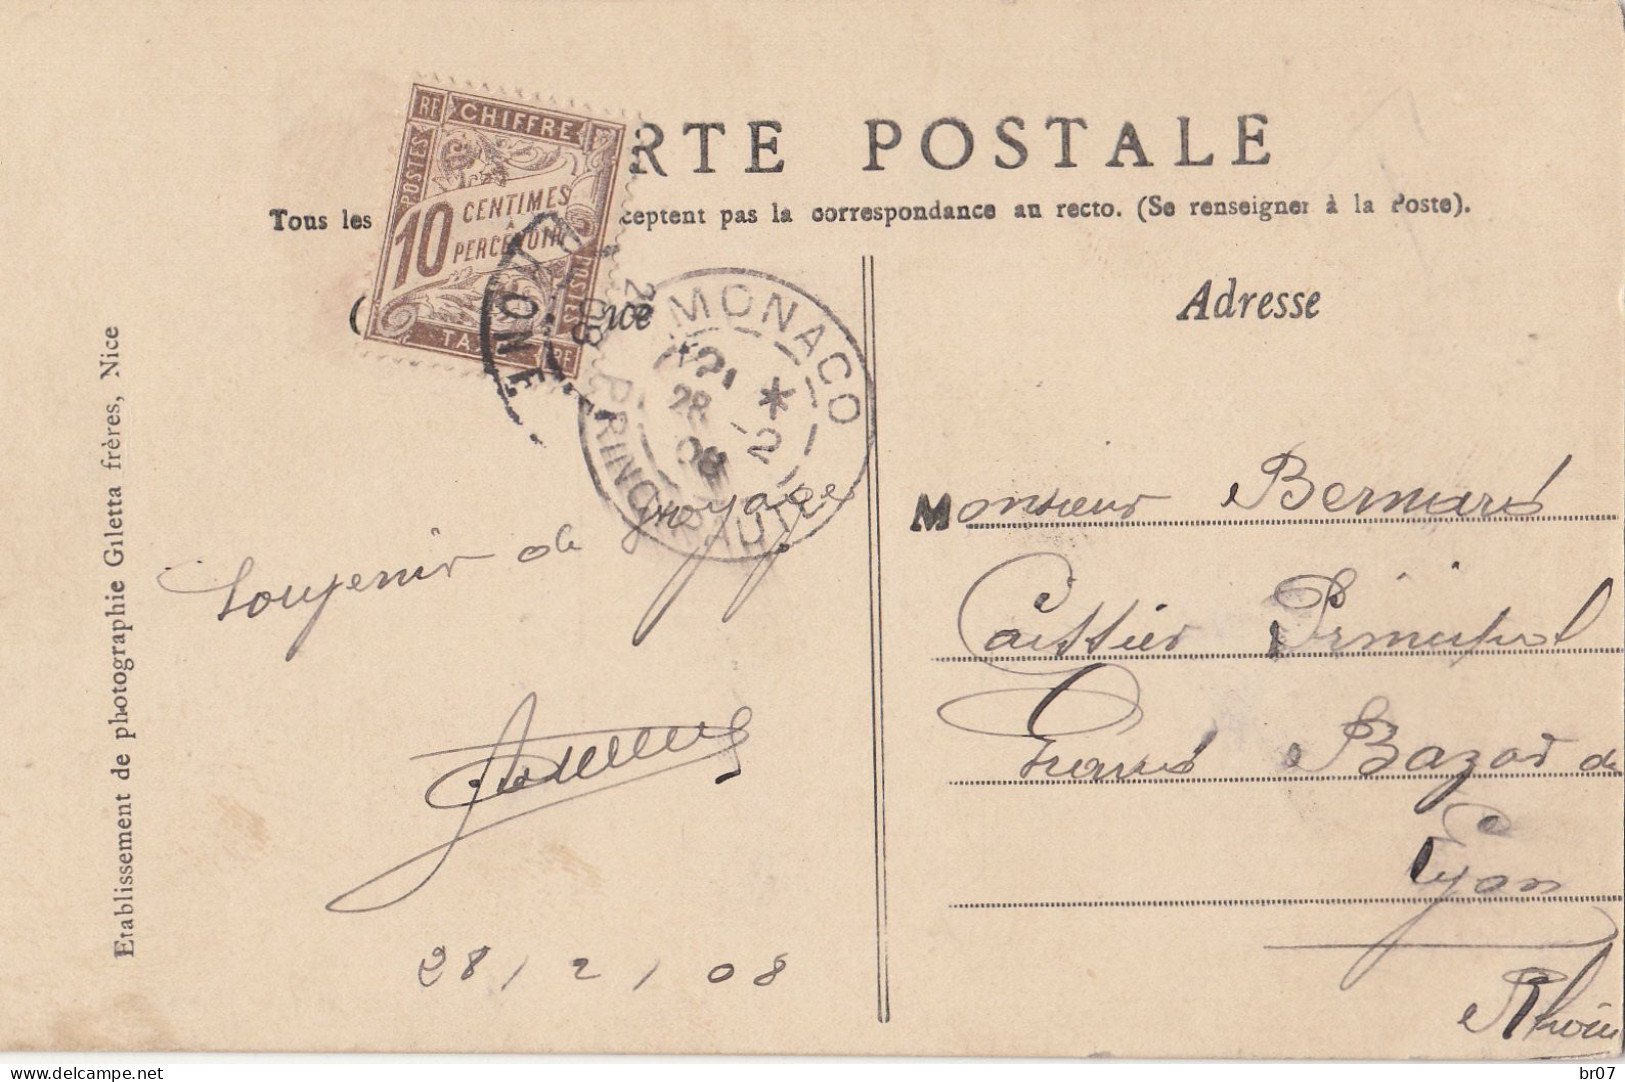 RTE POSTALE
Tous les ceptent pas la correspondance au recto. (Se renseigner à la Poste).
RF CHIFFRE
POSTES
10 CENTIMES
A
PERCEVOIR
POSTES
TAXE RF
MONACO
28
2
08
PRINCIPAUTE
Adresse
Souvenir de voyage
28/2/08
Monsieur Bernard
Caissier Principal
Grand Bazar de
Lyon
Rhône
Etablissement de photographie Giletta frères, Nice
delcampe.net
br07